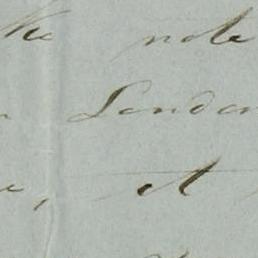 the note
London
, at